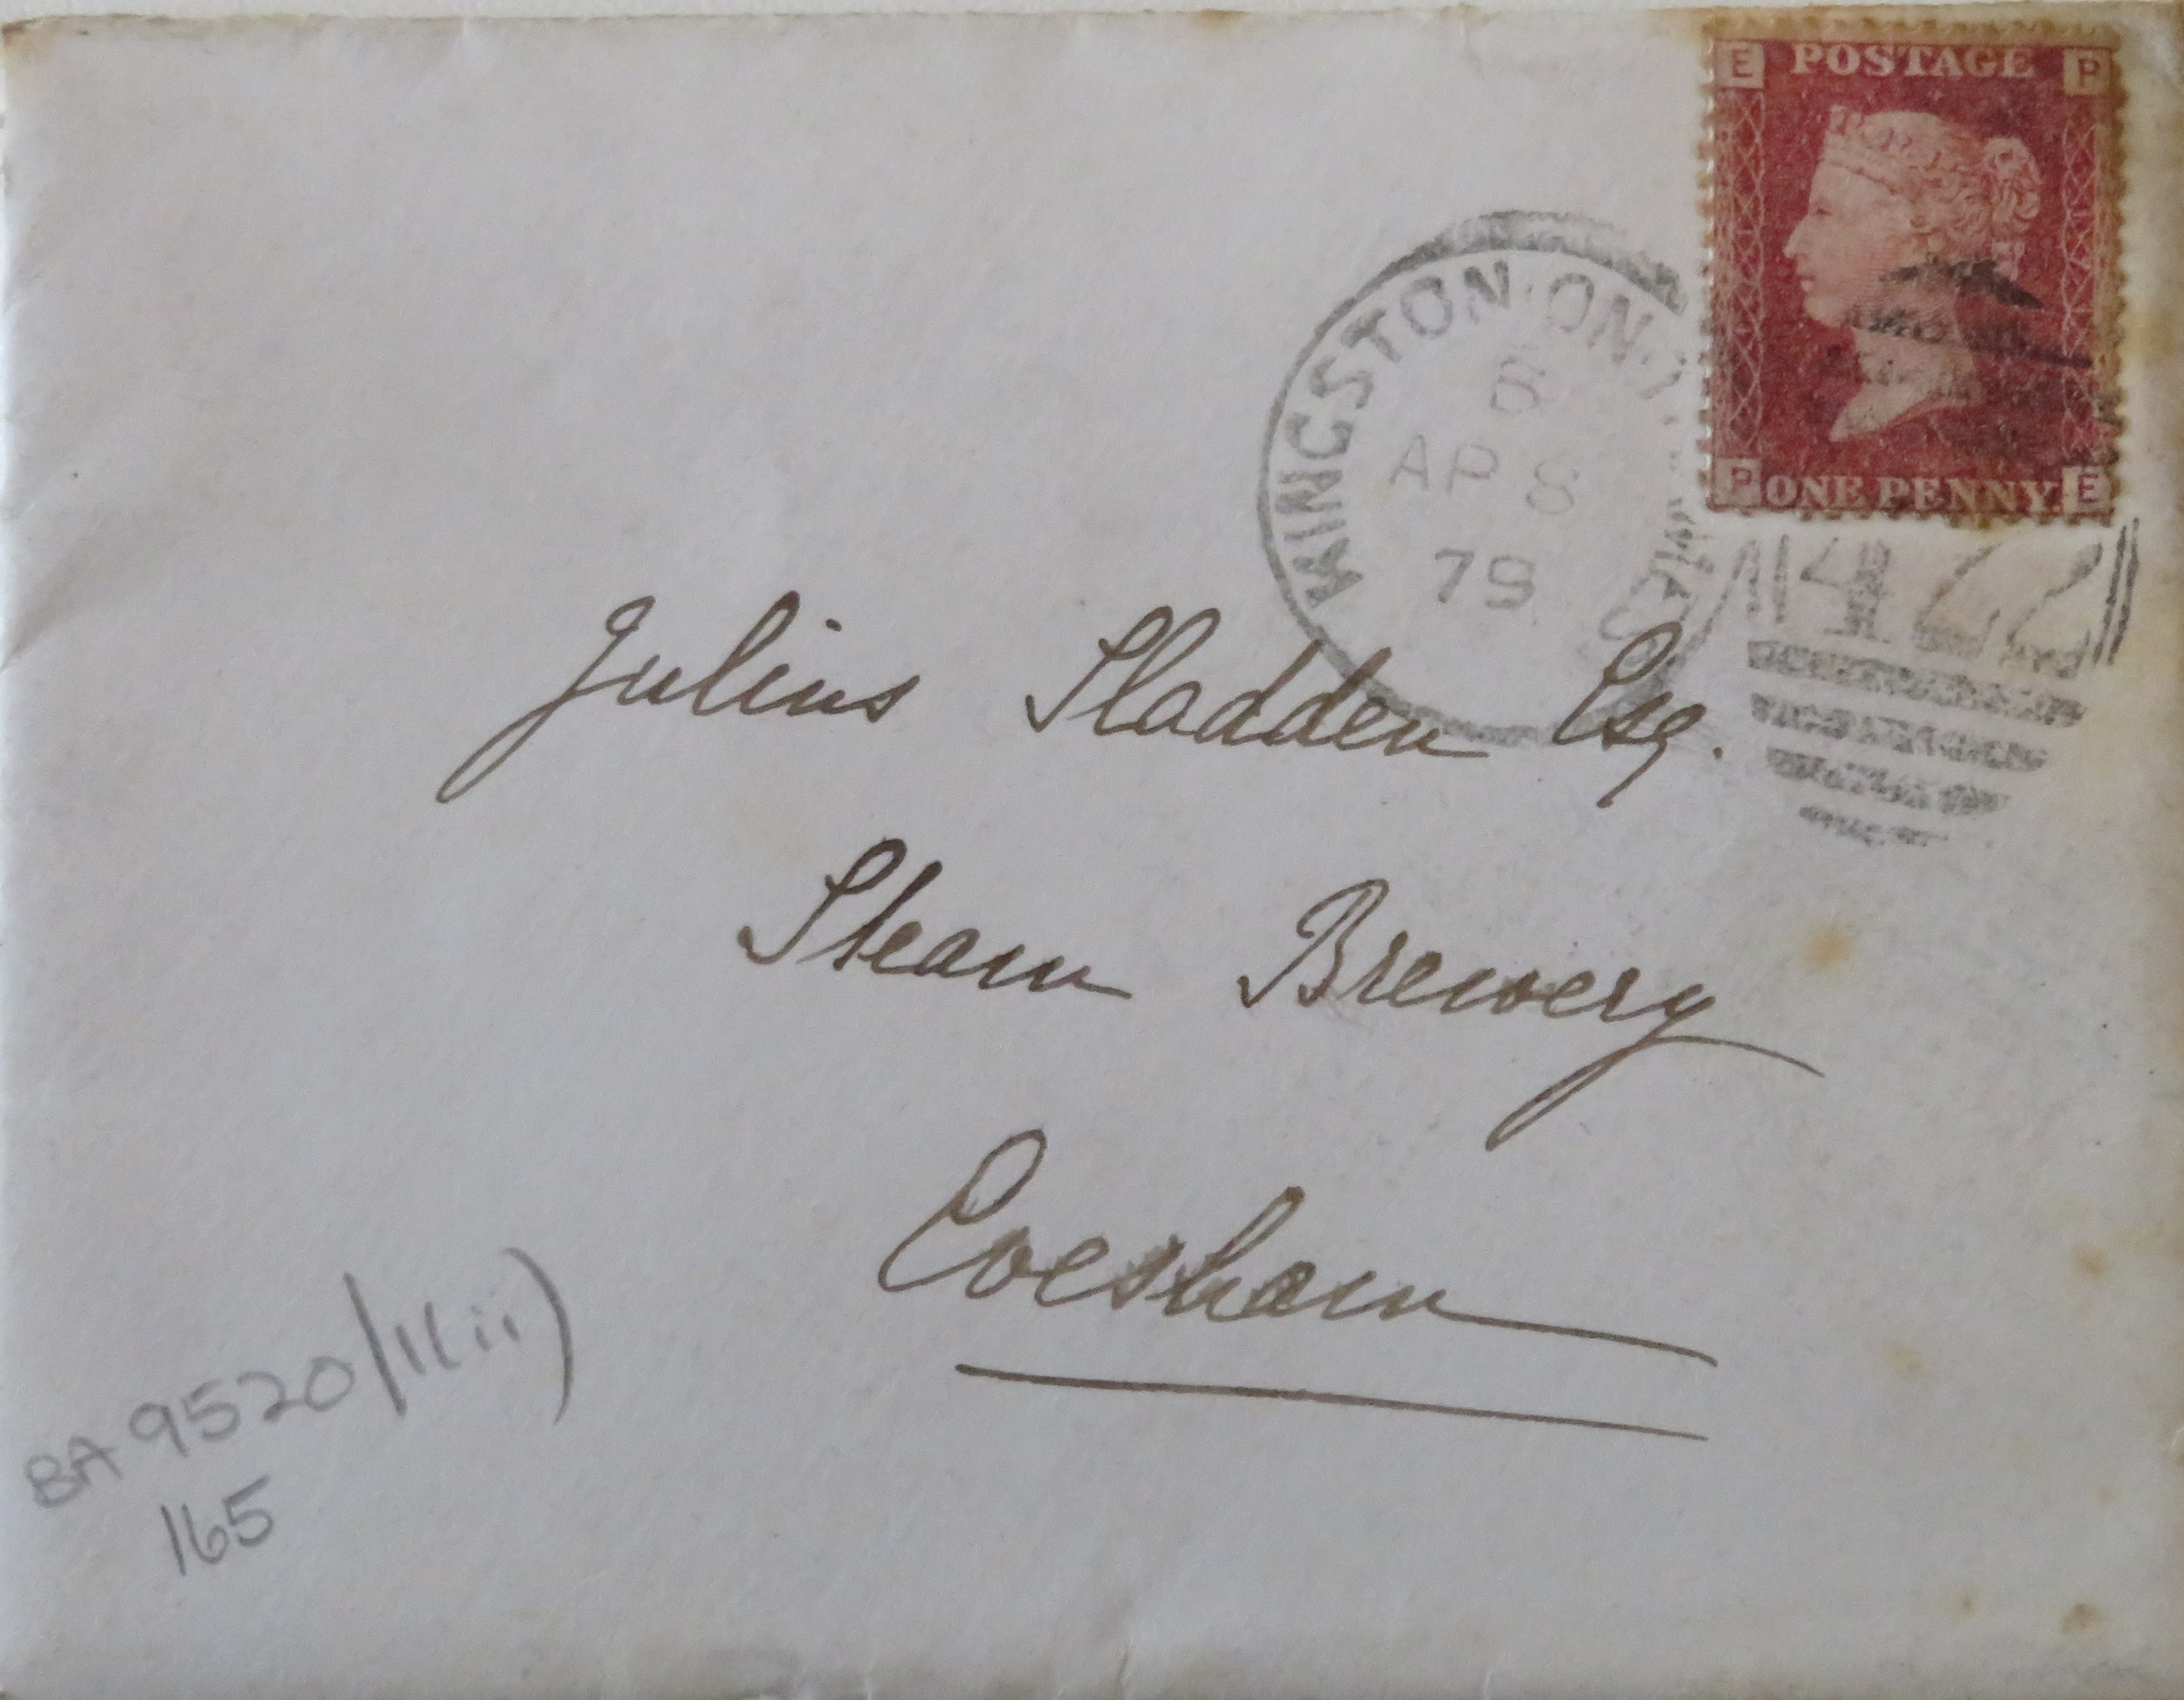 E POSTAGE P
P ONE PENNY. E
KINGSTON·ON·
AP 8
79
Julius Sladden Esq.
Steam Brewery
Evesham
BA 9520/11(ii)
165